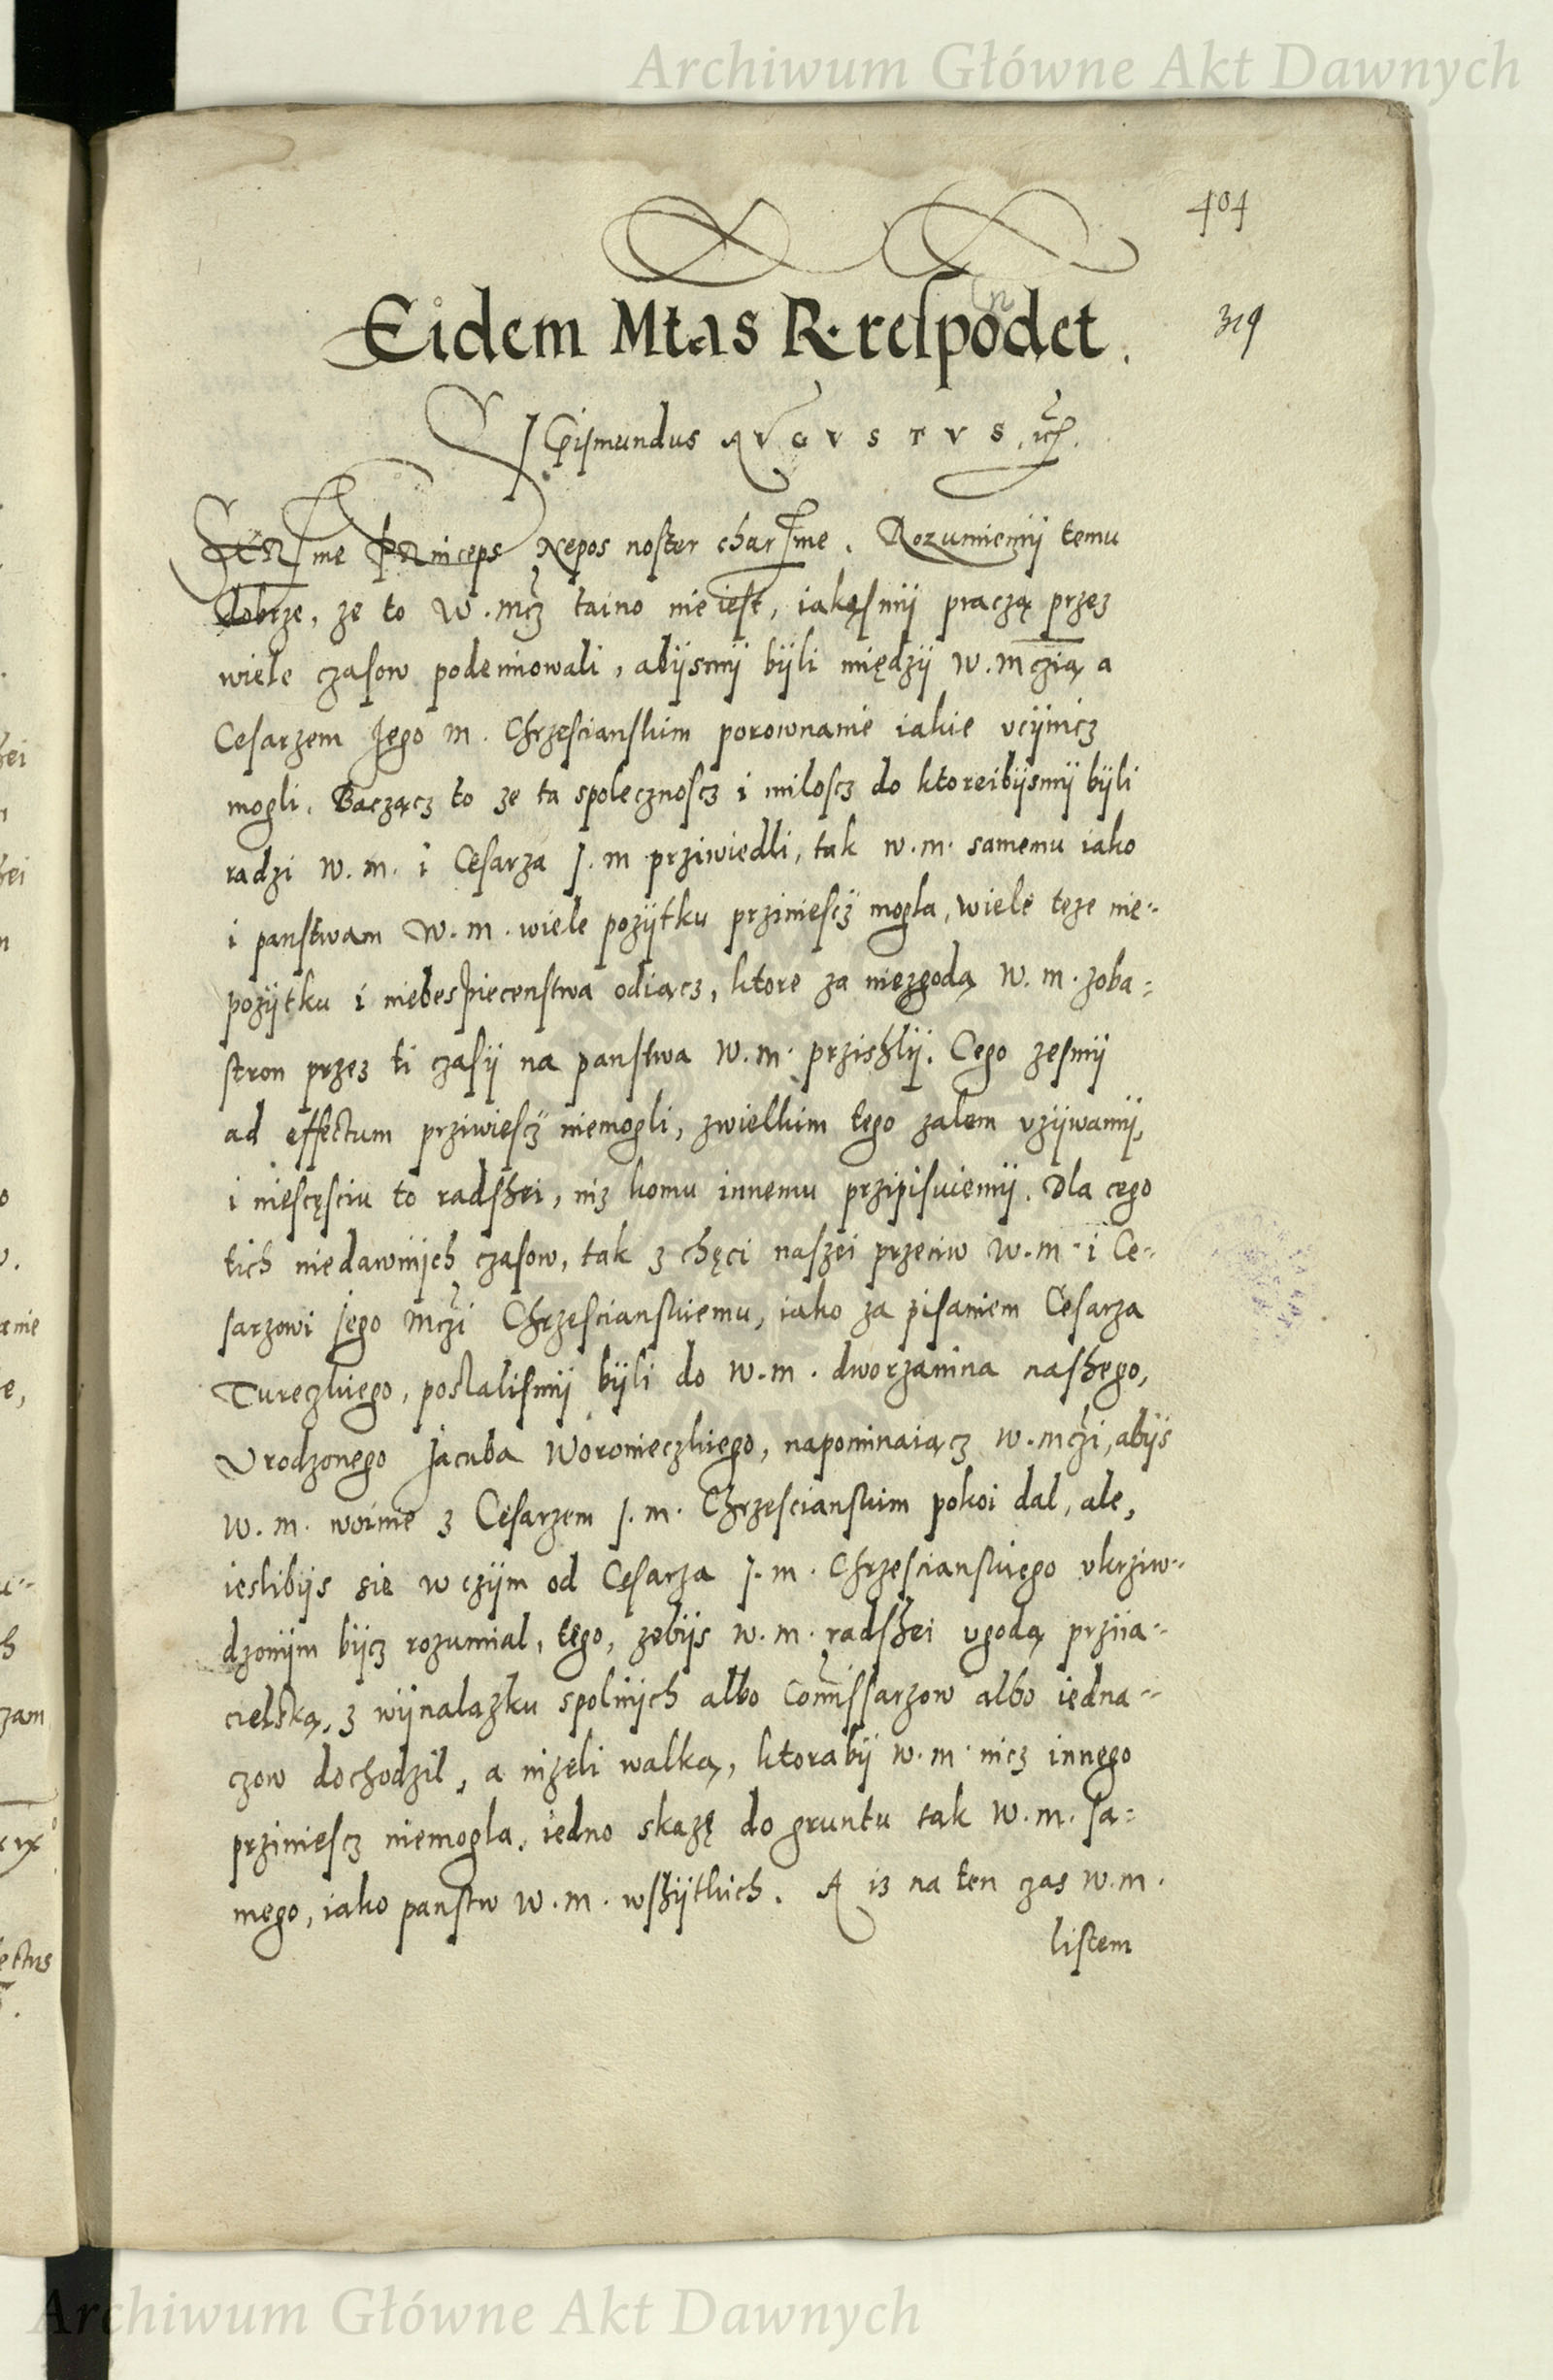 Archiwum Główne Akt Dawnych
404
Eidem Mtas R. respõdet.
319
SIGismundus AVGVSTVS, etc.
SERsme PRinceps Nepos noster charsme. Rozumiemÿ temu
dobrze, ze to W. mcz taino nie iest, iakąsmÿ praczą przez
wiele czasow podeimowali, abÿsmÿ bÿli międzÿ W. mczią a
Cesarzem Jego m. Chrzescianskim porownanie iakie vcÿnicz
mogli. Bacząncz to ze ta spolecznoscz i miloscz do ktoreibÿsmÿ bÿli
radzi W. m. i Cesarza J. m prziwiedli, tak w. m. samemu iako
i panstwam W. m. wiele pozÿtku prziniescz mogla, wiele teze nie-
pozÿtku i niebespiecenstwa odiącz, ktore za niezgodą W. m. zoba-
stron przez ti czasÿ na panstwa W. m. priszlÿ. Cego zesmÿ
ad effectum prziwiescz niemogli, zwielkim tego zalem vzÿwamÿ,
i niescęsciu to radshei, niz komu innemu przipisuiemÿ. Dla cego
tich niedawnÿch czasow, tak z chęci naszei przeciw W. m. i Ce-
sarzowi Jego mczi Chrzescianskiemu, iako za pisaniem Cesarza
Tureczkiego, poslalismÿ bÿli do W. m. dworzanina nashego,
Vrodzonego Jacuba Woronieczkiego, napominaiącz W. mczi, abÿs
W. m. woinie z Cesarzem J. m. Chrzescianskim pokoi dal, ale,
ieslibÿs sie w czÿm od Cesarza J. m. Chrzescianskiego vkrziw-
dzonÿm bÿcz rozumial, tego, zebÿs W. m. radshei vgodą prziia-
cielską, z wÿnalazku spolnÿch albo Comissarzow albo iedna-
czow dochodzil, a nizeli walką, ktorabÿ W. m. nicz innego
prziniescz niemogla, iedno skazę do gruntu tak W. m. sa-
mego, iako panstw W. m. wshÿtkich. A iz na ten czas W. m.
listem
Archiwum Główne Akt Dawnych